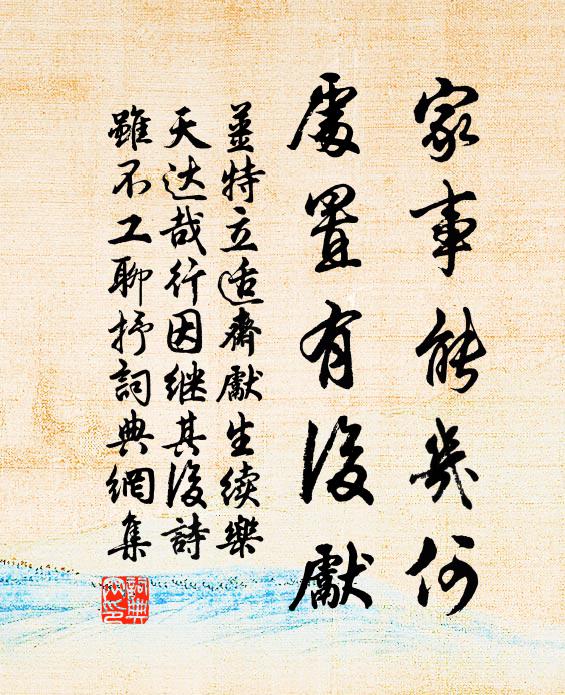 家事能幾何
處置有後獻
薑特立适齋獻生续樂
天达哉行因继其後詩
雖不工聊抒詞典網集